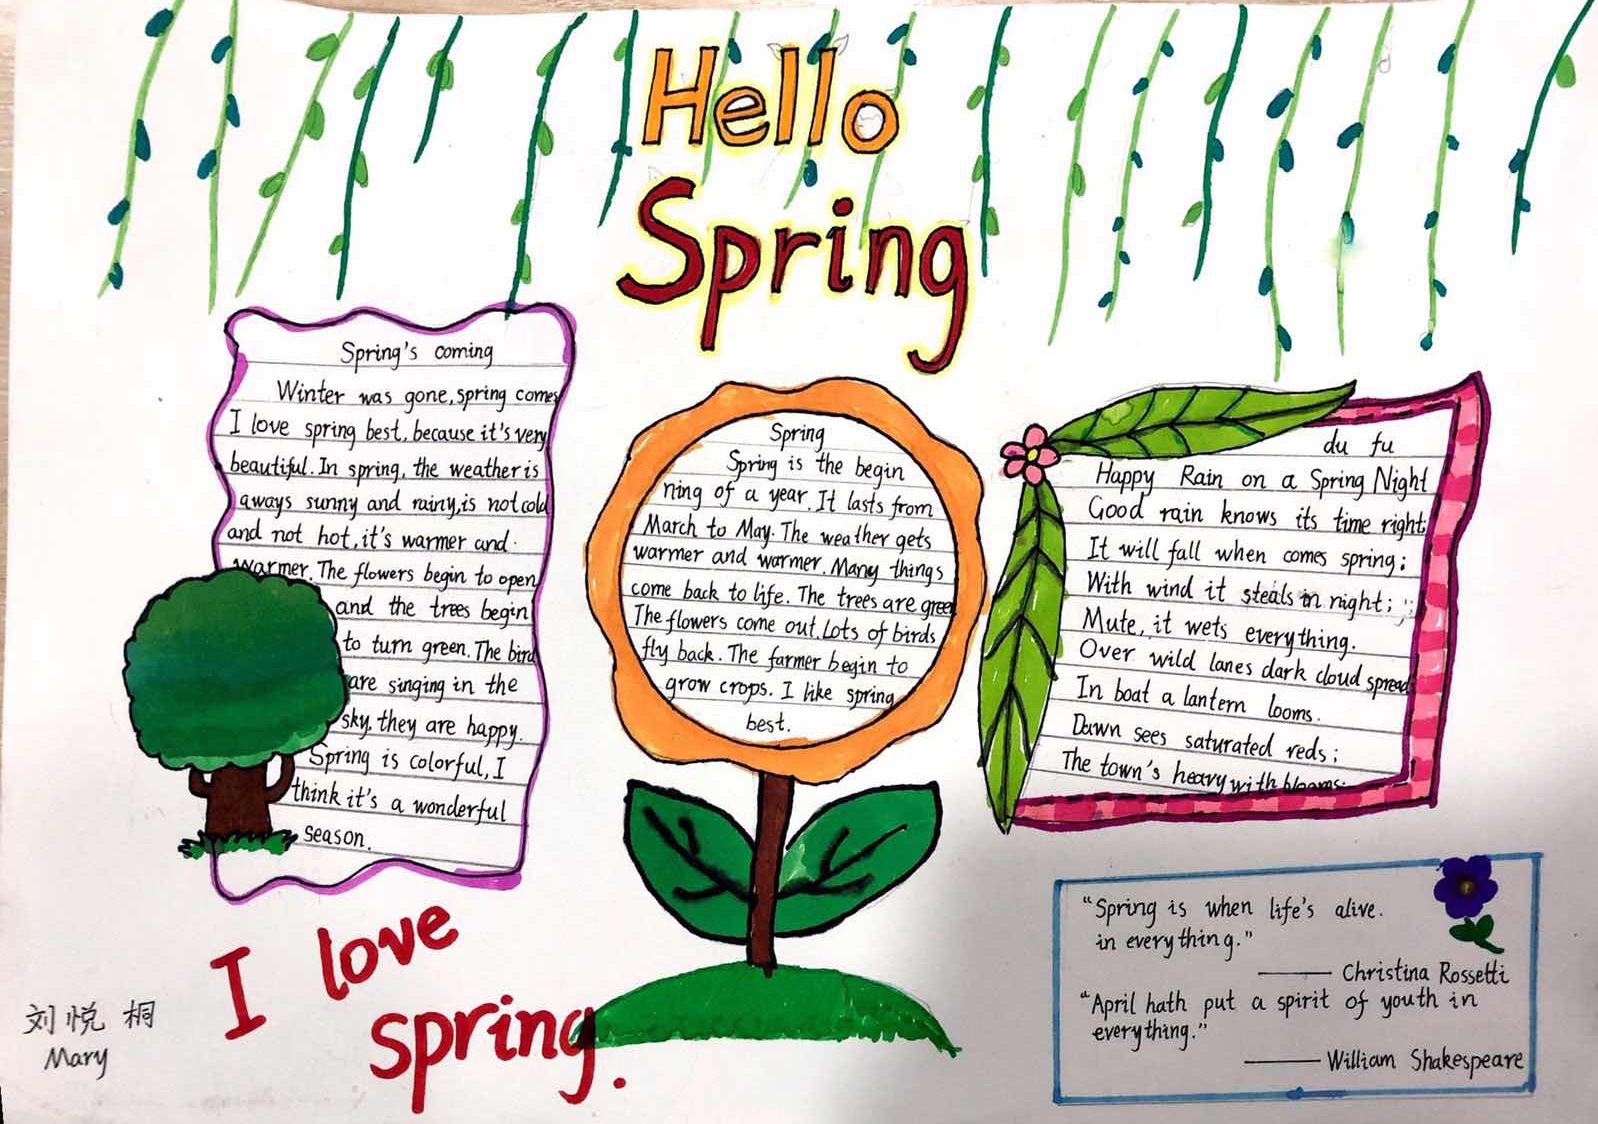 Hello
Spring
Spring's coming
Winter was gone, spring comes
I love spring best, because it's very
beautiful. In spring, the weather is
aways sunny and rainy, is not cold
and not hot, it's warmer and
warmer. The flowers begin to open
and the trees begin
to turn green. The bird
are singing in the
sky, they are happy.
Spring is colorful, I
think it's a wonderful
season.
Spring
Spring is the begin
ning of a year. It lasts from
March to May. The weather gets
warmer and warmer. Many things
come back to life. The trees are green
The flowers come out. Lots of birds
fly back. The farmer begin to
grow crops. I like spring
best.
du fu
Happy Rain on a Spring Night
Good rain knows its time right;
It will fall when comes spring;
With wind it steals in night;
Mute, it wets everything.
Over wild lanes dark cloud spreads
In boat a lantern looms.
Dawn sees saturated reds;
The town's heavy with blooms.
"Spring is when life's alive.
in everything."
—— Christina Rossetti
"April hath put a spirit of youth in
everything."
—— William Shakespeare
I love
spring.
刘悦桐
Mary